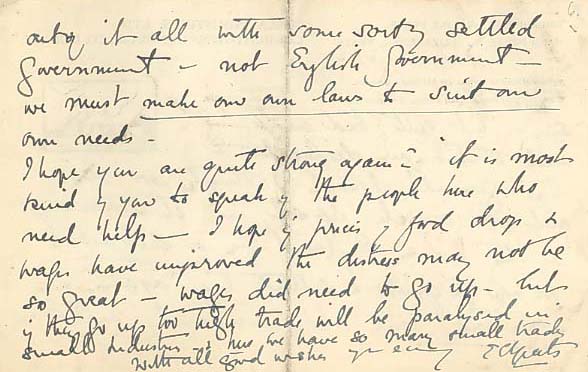 out of it all with some sort of settled
Government – not English Government –
we must make our own laws to suit our
own needs –
I hope you are quite strong again – it is most
kind of you to speak of the people here who
need help – I hope if prices of food drop &
wages have improved the distress may not be
so great – wages did need to go up – but
if they go up too high trade will be paralysed in
small industries – & here we have so many small trades
with all good wishes yrs ECYeats